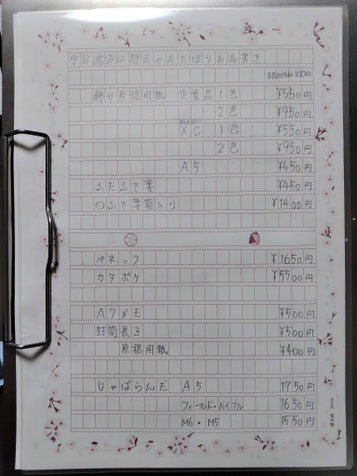 飾り原稿用紙 定番品 1色 ¥550円
2色 ¥950円
XC 1色 ¥550円
2色 ¥950円
A5 ¥450円
ふたふで箋 ¥450円
つふで箋箱入り ¥1400円
ペネック ¥1650円
カタポケ ¥5500円
A7メモ ¥500円
封筒長3 ¥500円
原稿用紙 ¥400円
じゃばらんだ A5 1750円
フィールド・バイブル 1650円
M6・M5 1550円